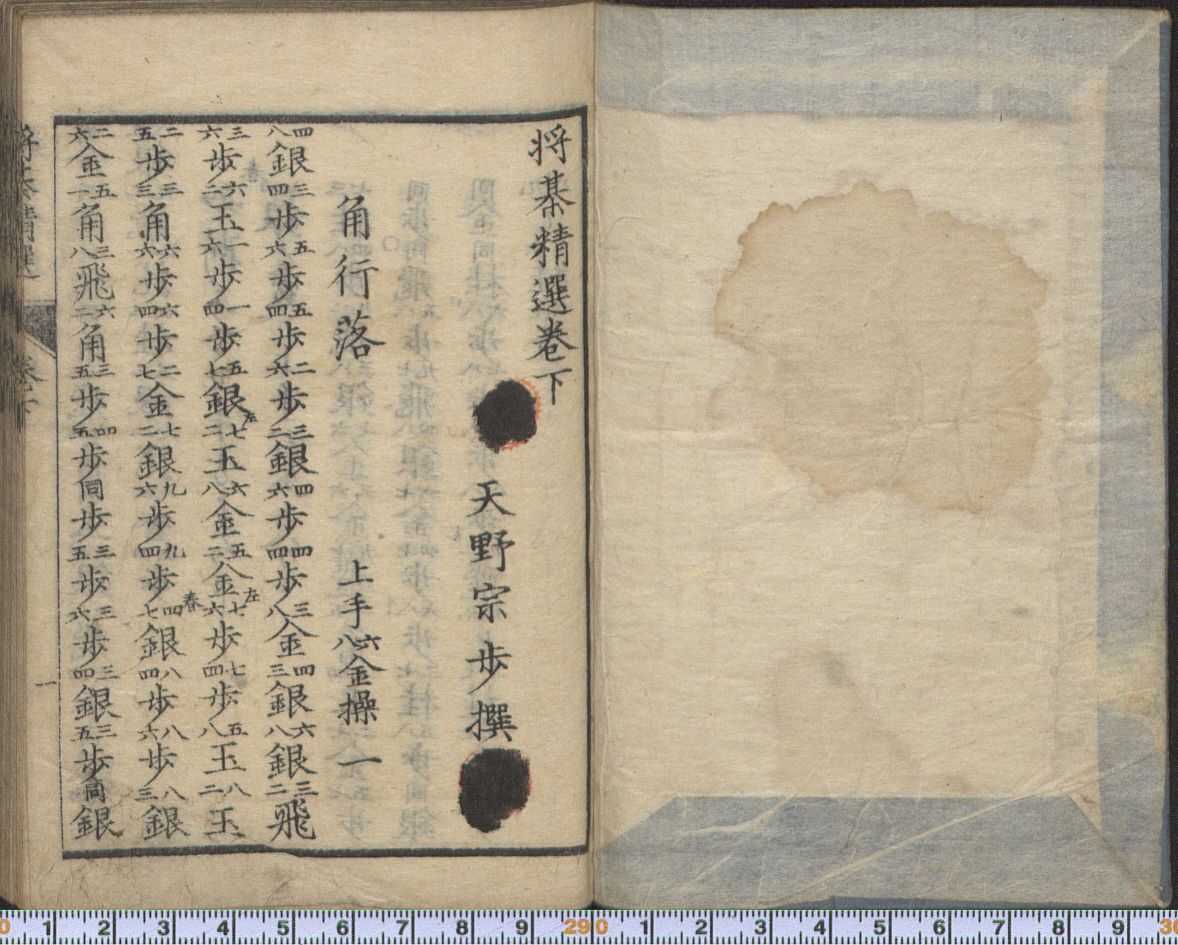 将棊精選卷下
天野宗歩撰
角行落 上手六八金操一
四八銀三四歩五六歩五四歩二六歩三二銀四六歩四四歩三八金四三銀六八銀三二飛
三六歩六二玉一六歩一四歩五七銀左七二玉六八金五二金左七六歩七四歩五八玉八二玉
二五歩三三角六六歩六四歩二七金七二銀九六歩九四歩四七銀八四歩八六歩八三銀
二六金五一角三八飛六二角三五歩四五歩同歩三五歩三六歩三四銀三五歩同銀
将棊精選 卷下 一
0 1 2 3 4 5 6 7 8 9 29 0 1 2 3 4 5 6 7 8 9 30